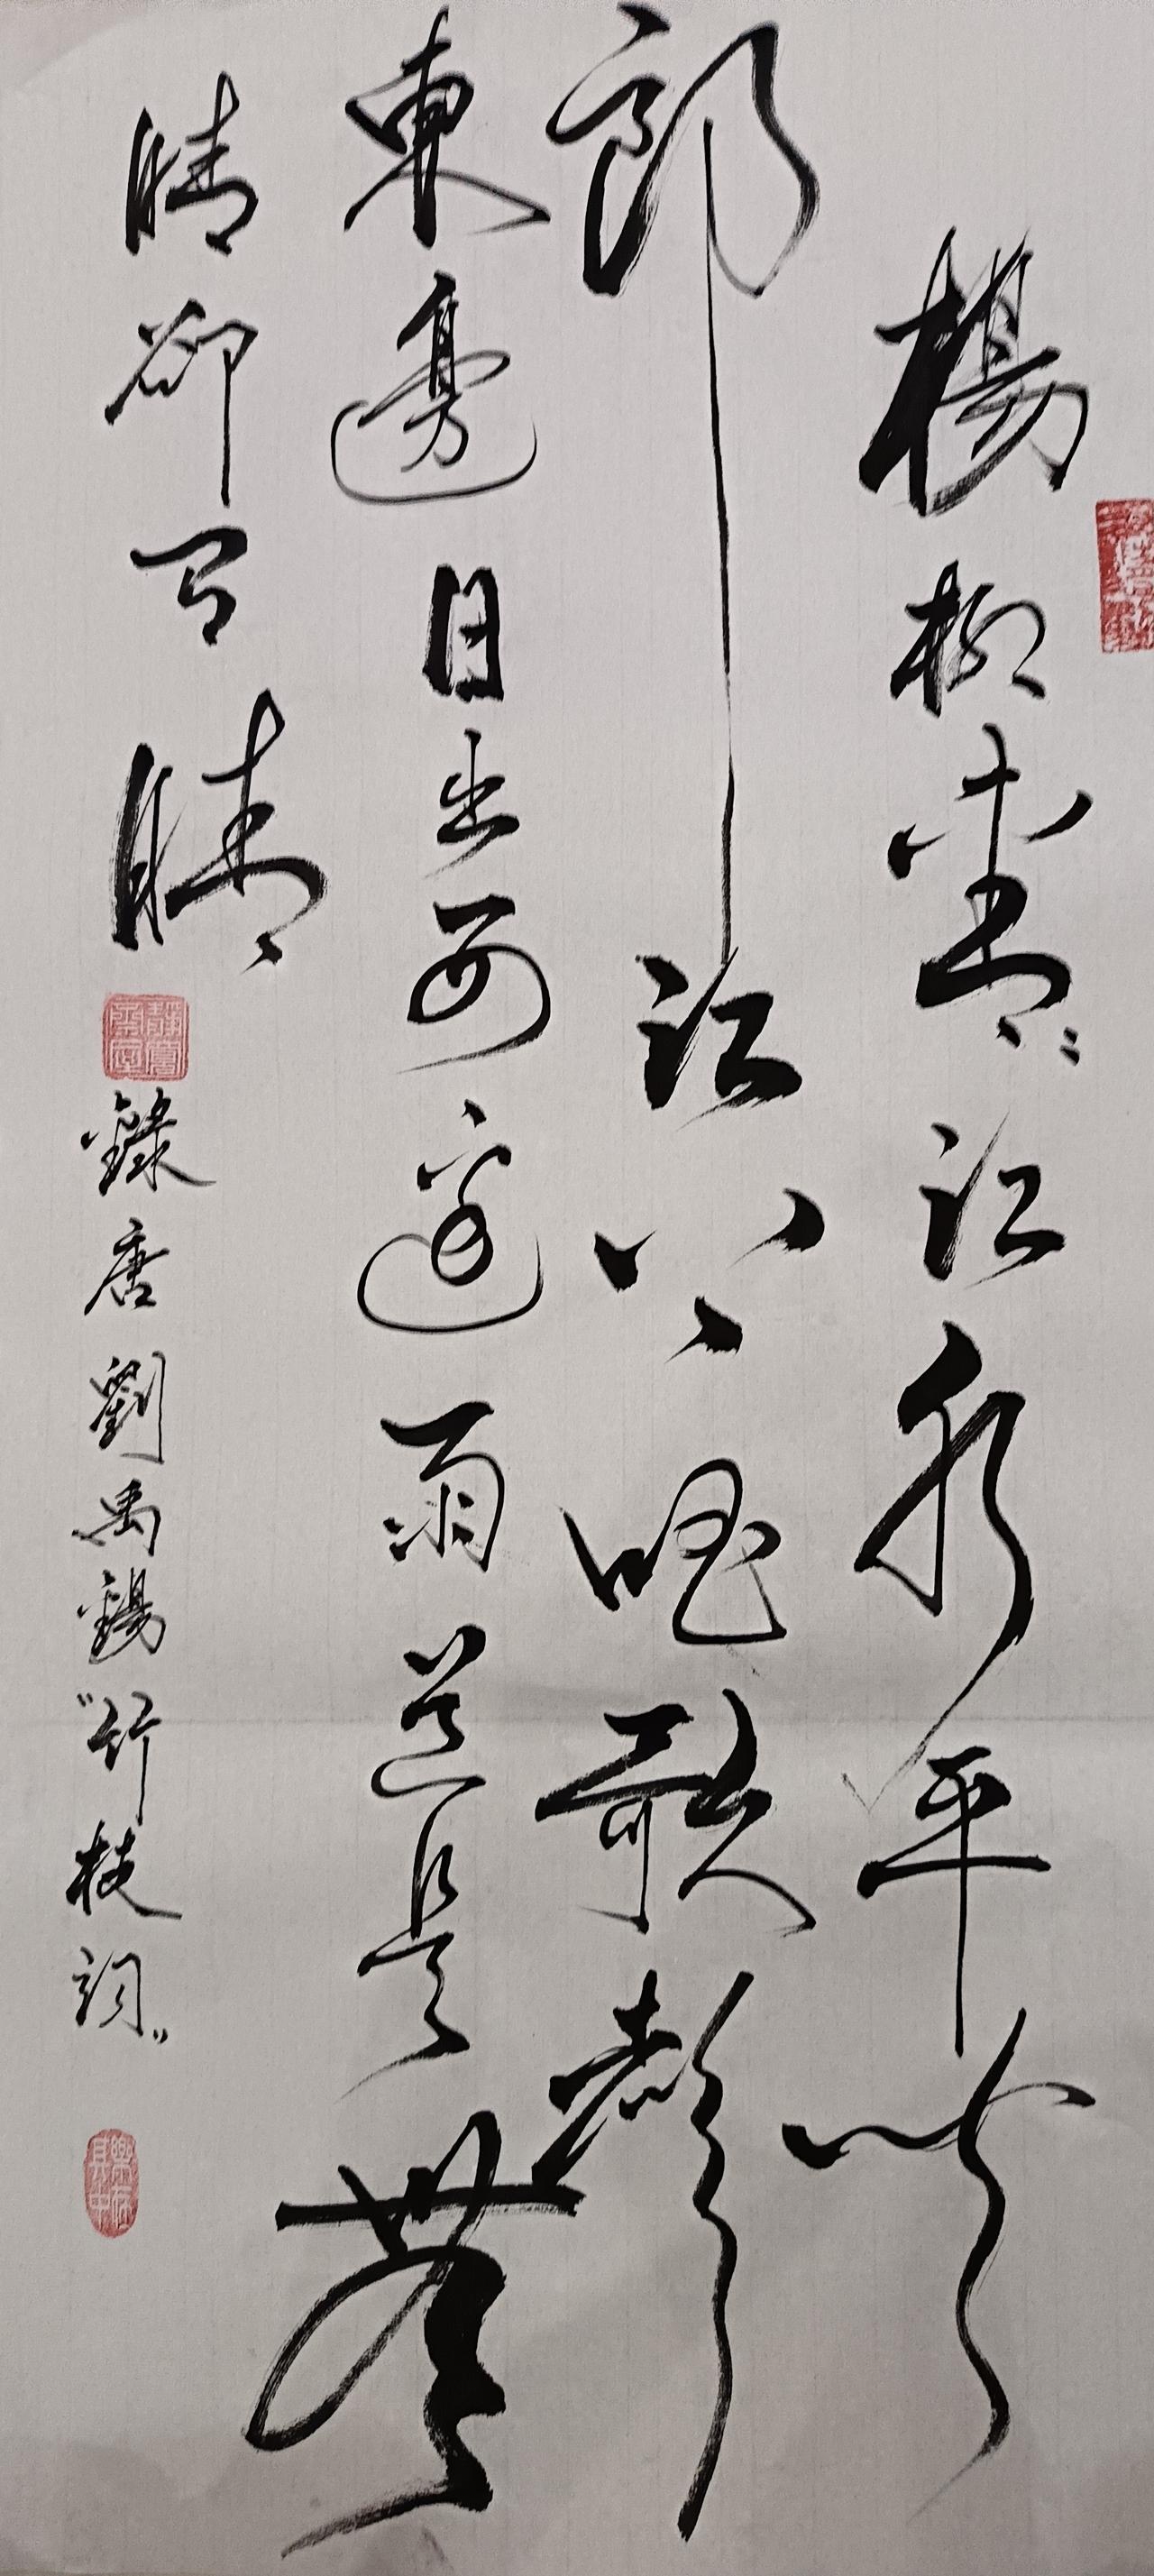 楊柳青々江水平聞
郎江上唱歌聲
東邊日出西邊雨道是無
晴卻有晴
錄唐劉禹錫"竹枝詞"
樂在其中